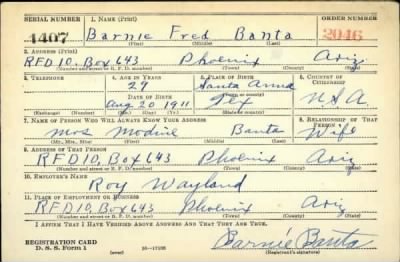 SERIAL NUMBER 1. NAME (Print) ORDER NUMBER
1407 Barnie Fred Banta 2046
(First) (Middle) (Last)
2. ADDRESS (Print)
RFD 10, Box 643 Phoenix Ariz
(Number and street or R. F. D. number) (Town) (County) (State)
3. TELEPHONE 4. AGE IN YEARS 5. PLACE OF BIRTH 6. COUNTRY OF CITIZENSHIP
29 Santa Anna
DATE OF BIRTH (Town or county)
Aug 20 1911 Tex U.S.A.
(Exchange) (Number) (Mo.) (Day) (Yr.) (State or country)
7. NAME OF PERSON WHO WILL ALWAYS KNOW YOUR ADDRESS 8. RELATIONSHIP OF THAT PERSON
Mrs Modine Banta Wife
(Mr., Mrs., Miss) (First) (Middle) (Last)
9. ADDRESS OF THAT PERSON
RFD 10, Box 643 Phoenix Ariz
(Number and street or R. F. D. number) (Town) (County) (State)
10. EMPLOYER'S NAME
Roy Wayland
11. PLACE OF EMPLOYMENT OR BUSINESS
RFD 10, Box 643 Phoenix Ariz
(Number and street or R. F. D. number) (Town) (County) (State)
I AFFIRM THAT I HAVE VERIFIED ABOVE ANSWERS AND THAT THEY ARE TRUE.
Barnie Banta
REGISTRATION CARD
D. S. S. Form 1 (over) (Registrant's signature)